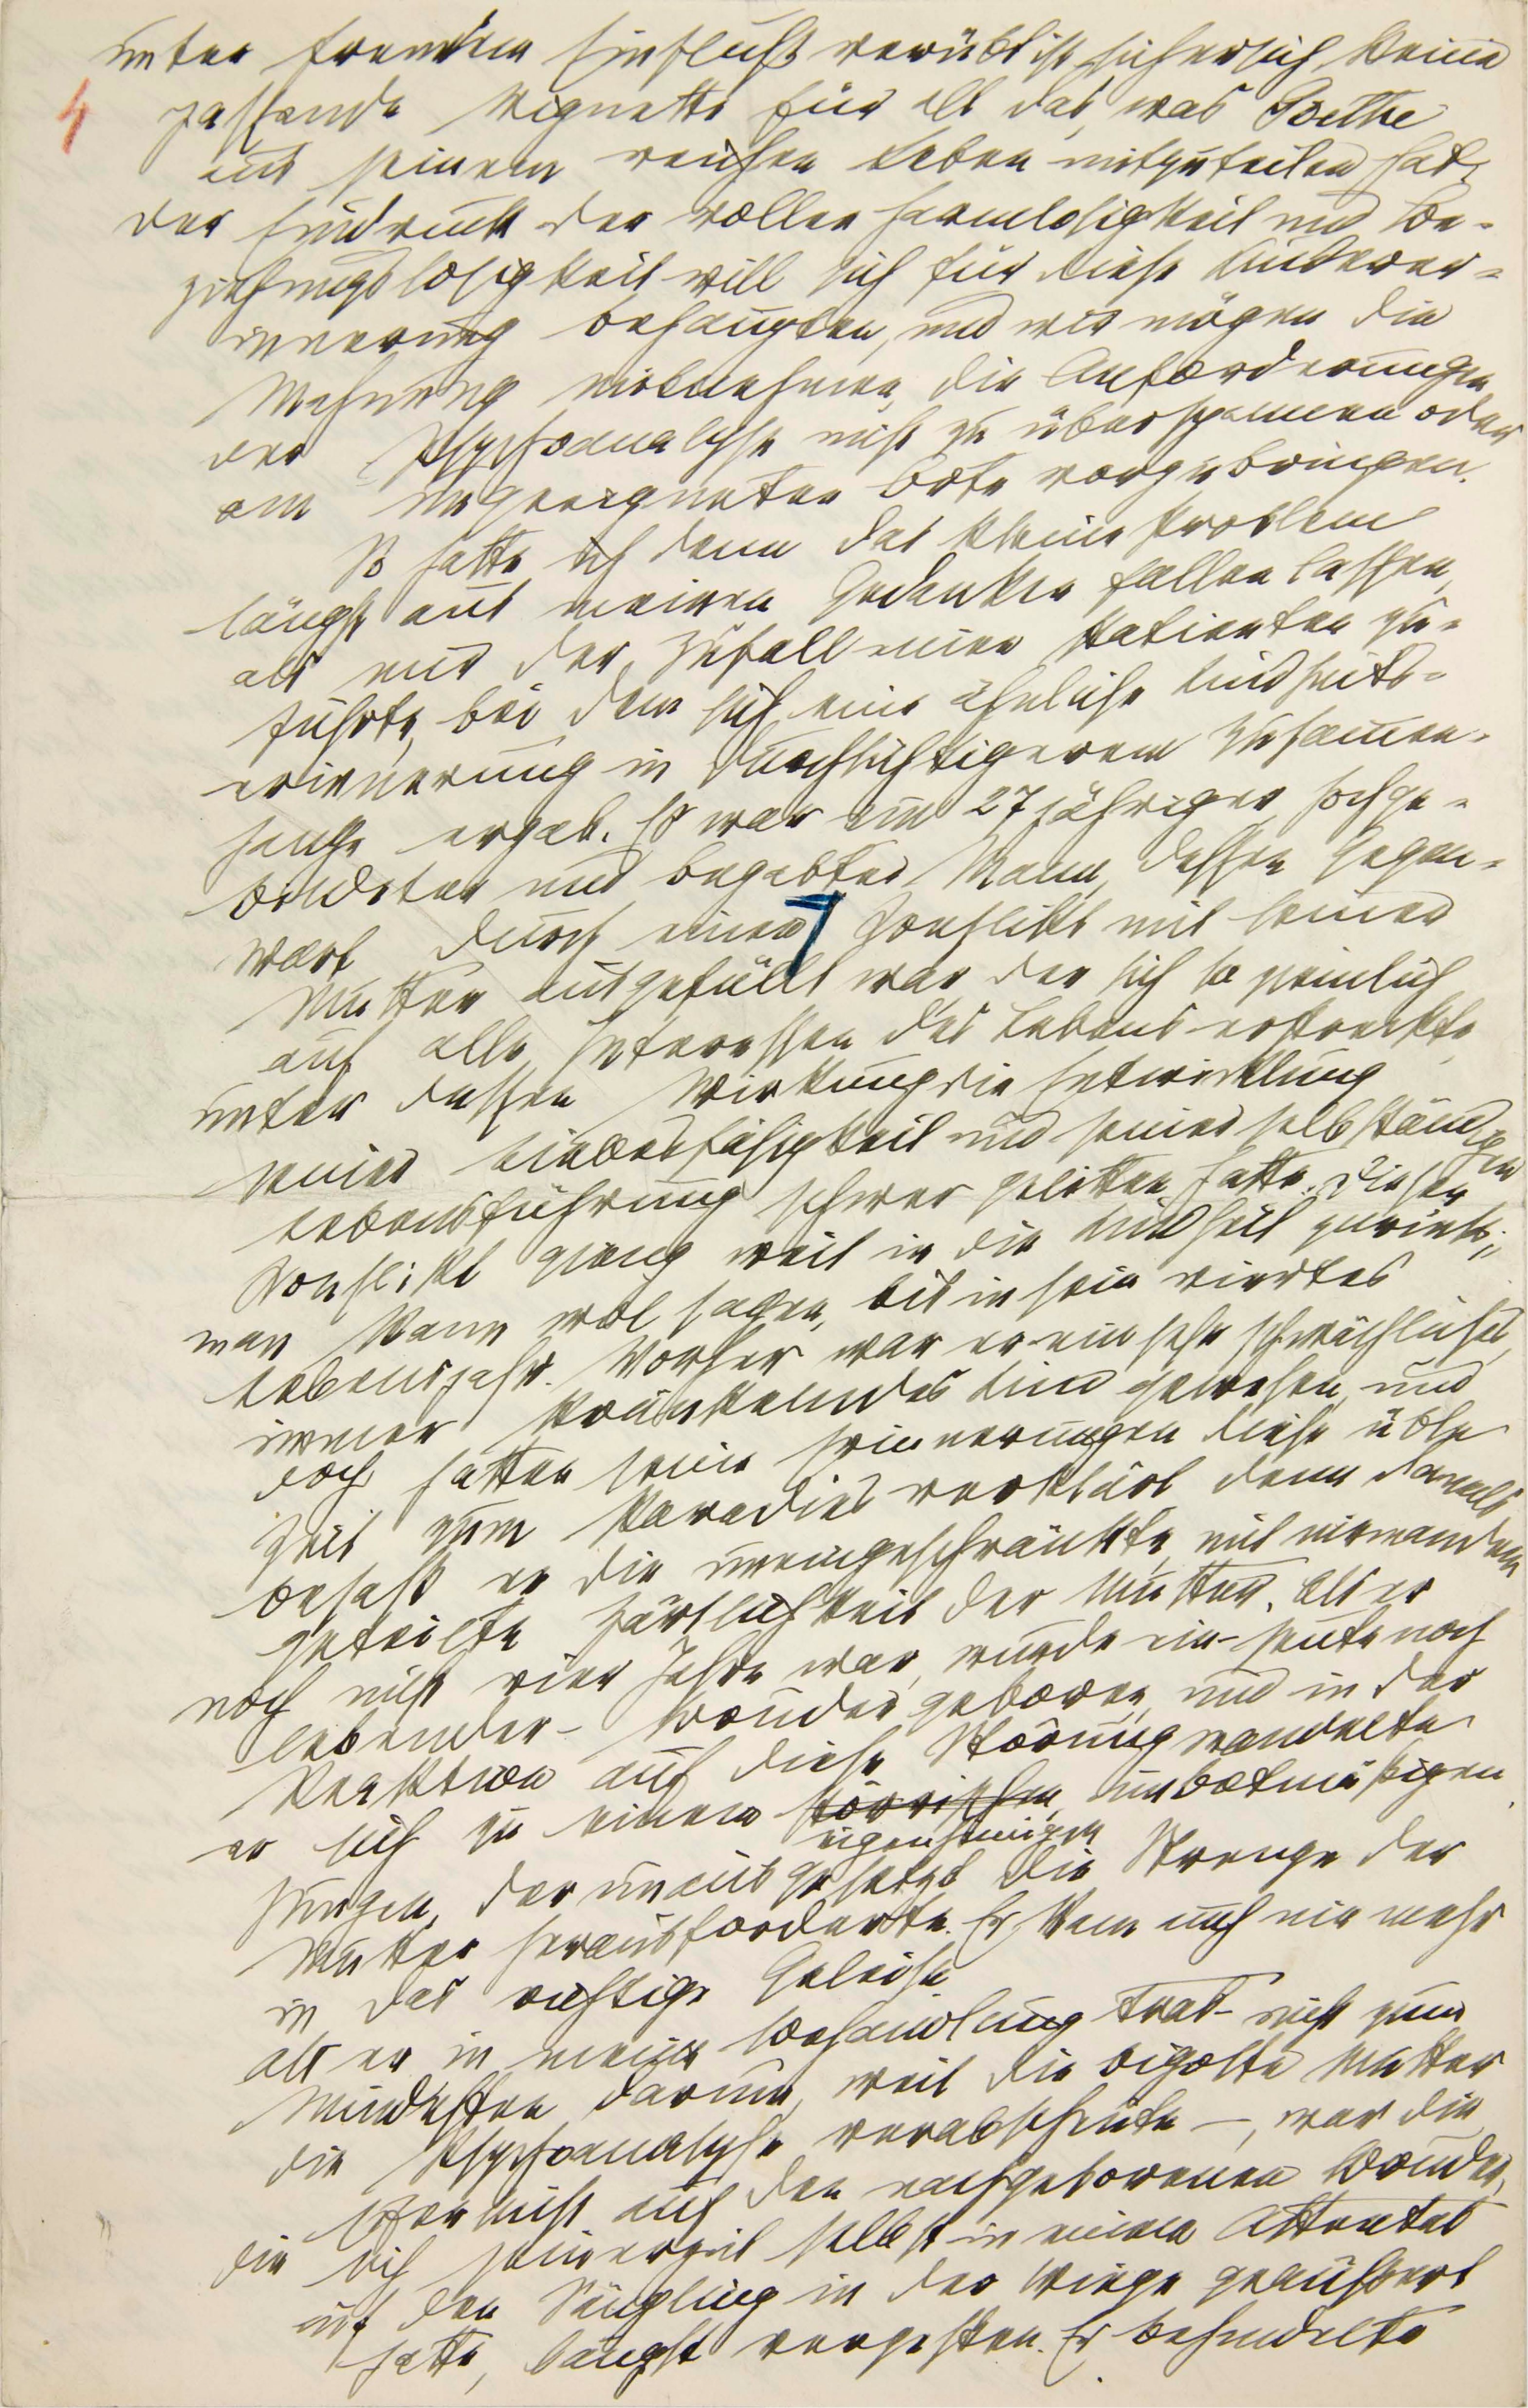 unter fremdem Einfluß verübt ist sicherlich keine
4 passende Vignette für all das, was Goethe
aus seinem reichen Leben mitzuteilen hat.
Der Eindruck der vollen Harmlosigkeit und Be-
ziehungslosigkeit will sich für diese Kinderer-
innerung behaupten, und wir mögen die
Mahnung mitnehmen, die Anforderungen
der Psychoanalyse nicht zu überspannen oder
am ungeeigneten Orte vorzubringen.
So hatte ich denn das kleine Problem
längst aus meinen Gedanken fallen lassen,
als mir der Zufall einen Patienten zu-
führte, bei dem sich eine ähnliche Kindheits-
erinnerung in durchsichtigerem Zusammen-
hange ergab. Es war ein 27jähriger, hochge-
bildeter und begabter Mann, dessen Gegen-
wart durch einen Konflikt mit seiner
Mutter ausgefüllt war, der sich so ziemlich
auf alle Interessen des Lebens erstreckte,
unter dessen Wirkung die Entwicklung
seiner Liebesfähigkeit und seiner selbständigen
Lebensführung schwer gelitten hatte. Dieser
Konflikt gieng weit in die Kindheit zurück;
man kann wol sagen, bis in sein viertes
Lebensjahr. Vorher war er ein sehr schwächliches,
immer kränkelndes Kind gewesen, und
doch hatten seine Erinnerungen diese üble
Zeit zum Paradies verklärt, denn damals
besaß er die uneingeschränkte, mit niemandem
geteilte Zärtlichkeit der Mutter. Als er
noch nicht vier Jahre war, wurde ein – heute noch
lebender – Bruder geboren, und in der
Reaktion auf diese Störung wandelte
er sich zu einem störrischen, unbotmäßigen
eigensinnigen
Jungen, der unausgesetzt die Strenge der
Mutter herausforderte. Er kam auch nie mehr
in das richtige Geleise.
Als er in meine Behandlung trat – nicht zum
Mindesten darum, weil die bigotte Mutter
die Psychoanalyse verabscheute –, war die
Eifersucht auf den nachgeborenen Bruder,
die sich seinerzeit selbst in einem Attentat
auf den Säugling in der Wiege geäußert
hatte, längst vergessen. Er behandelte